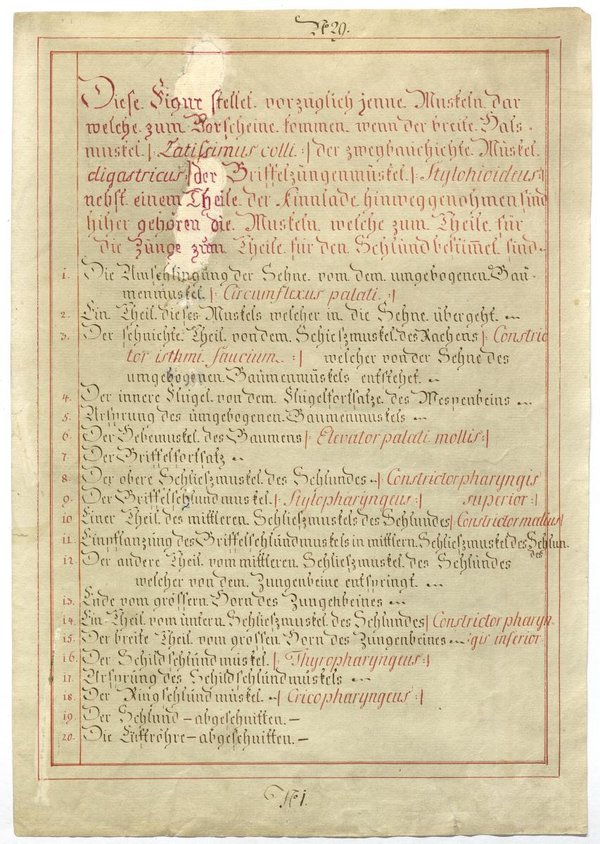 No 29.
Diese Figur stellet vorzüglich jenne Muskeln dar
welche zum Vorscheine kommen wenn der breite Hals
muskel |: Latissimus colli :| der zweybauchichte Muskel
digastricus :| der Briffelzüngenmüskel |: Stylohioideus :|
nebst einem Theile der Kinnlade hinweggenohmen sind
hiher gehören die Muskeln welche zum Theile für
die Zünge zum Theile für den Schlund bestimmet sind
1. Die Umschlingüng der Sehne von dem umgebogenen Baü-
menmuskel |: Circumflexus palati :|
2. Ein Theil dieses Muskels welcher in die Sehne übergeht
3. Der sehnichte Theil von dem Schlieszmuskel des Rachens |: Constric
tor isthmi faucium :| welcher von der Sehne des
umgebogenen Baümenmüskels entstehet
4. Der innere Flügel von dem Flügelfortsatze des Wespenbeins
5. Ursprung des umgebogenen Baumenmuskels
6. Der Hebemuskel des Baumens |: Elevator palati mollis :|
7. Der Briffelfortsatz
8. Der obere Schlieszmuskel des Schlundes |: Constrictor pharyngis
9. Der Briffelschlundmuskel |: Stylopharyngeus :| superior :|
10. Einer Theil des mittleren Schlieszmuskels des Schlundes |: Constrictor medius |
11. Einpflanzüng des Briffelschlundmuskels in mittlern Schlieszmuskel des Schlun
des
12. Der andere Theil vom mittleren Schlieszmuskel des Schlundes
welcher von dem Zungenbeine entspringt
13. Ende vom grössern Horn des Zungenbeines
14. Ein Theil vom üntern Schlieszmuskel des Schlundes |: Constrictor pharyn
15. Der breite Theil vom grossen Horn des Züngenbeines gis inferior
16. Der Schildschlund muskel |: Thyropharyngeus :|
17. Ursprung des Schildschlundmuskels
18. Der Ringschlund müskel |: Cricopharyngeus :|
19. Der Schlund – abgeschnitten –
20. Die Lüftröhre – abgeschnitten –
No 1.